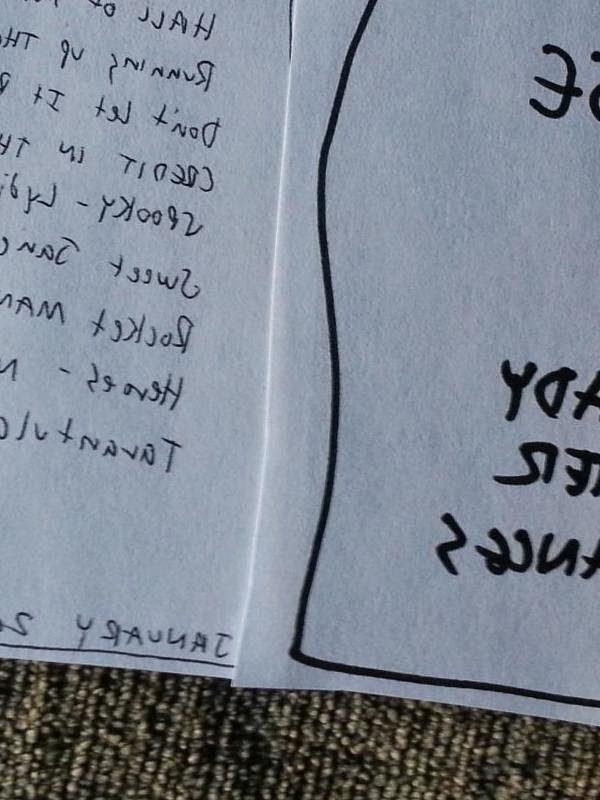 HALL OF
RUNNING UP TH
Don't Let It
CREDIT IN TH
SPOOKY - Lydi
Sweet Jane
Rocket MAN
Heroes -
Tarantula
JANUARY 2
ADY
TER
ANCES